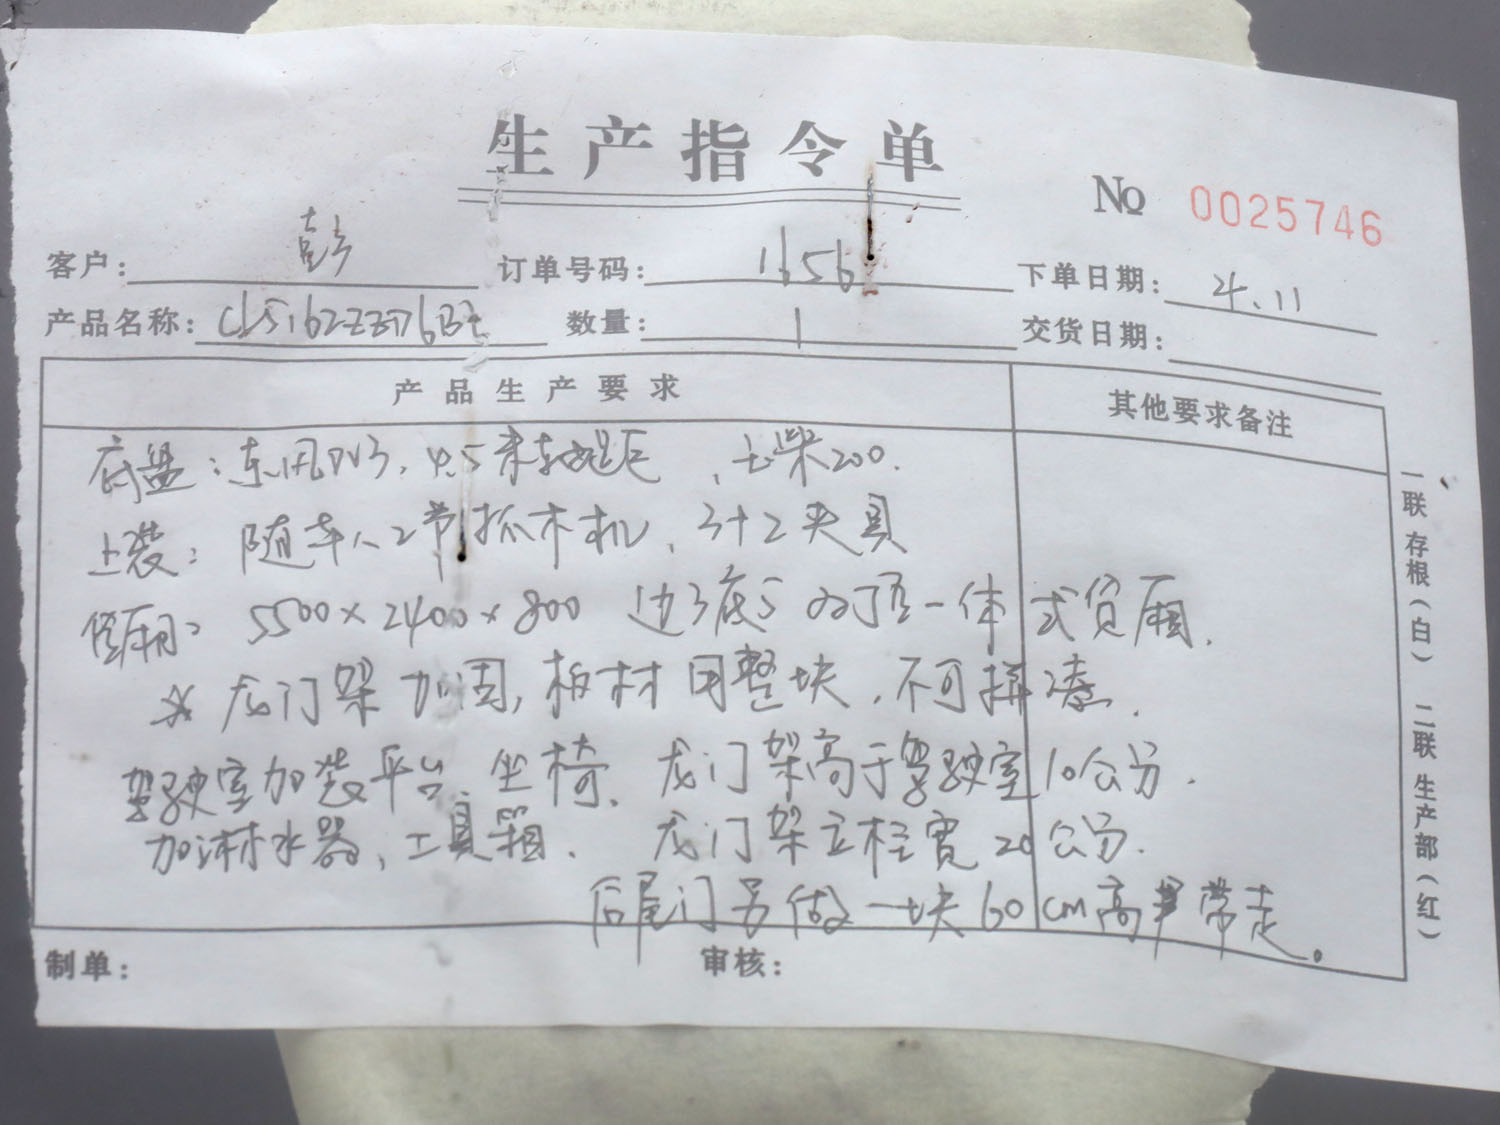 生产指令单
No 0025746
客户： 彭 订单号码： 1656 下单日期： 4.11
产品名称： 数量： 1 交货日期：
产品生产要求 其他要求备注
底盘：东风DV3，4.5米轴距，玉柴200．
上装：随车人2节抓木机，3+2夹具
货厢： 5500×2400×800 边3底5 一体式货厢．
※龙门架加固，板材用整块，不可拼凑．
驾驶室加装平台，坐椅、龙门架高于驾驶室10公分．
加淋水器，工具箱． 龙门架立柱宽20公分．
后尾门另做一块60cm高 带走。
制单： 审核：
一联存根（白） 二联生产部（红）